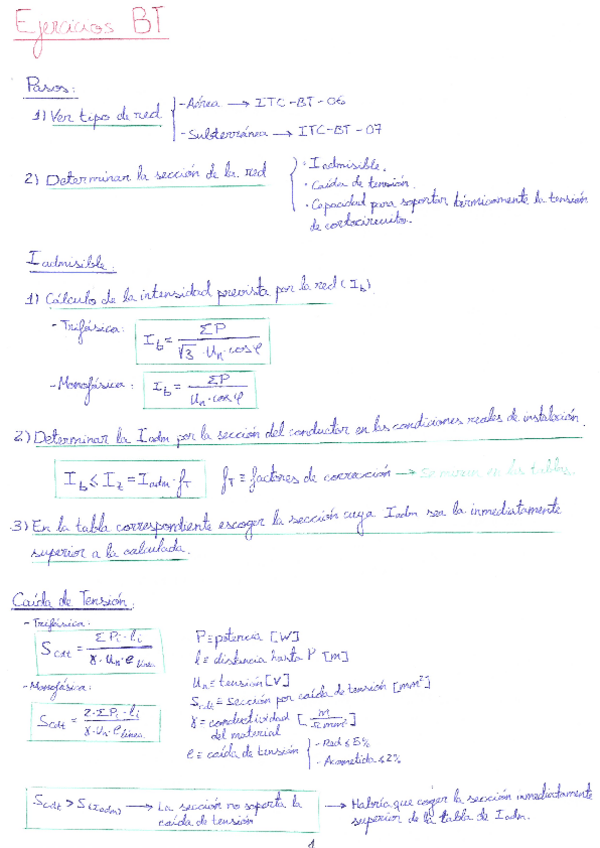 Ejercicios BT
Pasos:
1) Ver tipo de red { - Aérea → ITC-BT-06
- Subterránea → ITC-BT-07
2) Determinar la sección de la red { · I admisible.
· Caída de tensión.
· Capacidad para soportar térmicamente la tensión
de cortocircuitos.
I admisible:
1) Cálculo de la intensidad prevista por la red (I_b).
- Trifásica: I_b = ΣP / (√3 · U_n · cos φ)
- Monofásica: I_b = ΣP / (U_n · cos φ)
2) Determinar la I_adm por la sección del conductor en las condiciones reales de instalación.
I_b ≤ I_z = I_adm · f_T f_T ≡ factores de corrección → Se miran en las tablas
3) En la tabla correspondiente escoger la sección cuya I_adm sea la inmediatamente
superior a la calculada.
Caída de Tensión:
- Trifásica:
S_cdt = Σ P_i · l_i / (γ · U_n · e_línea)
- Monofásica:
S_cdt = 2 · Σ P_i · l_i / (γ · U_n · e_línea)
P ≡ potencia [W]
l ≡ distancia hasta P [m]
U_n ≡ tensión [V]
S_cdt ≡ sección por caída de tensión [mm²]
γ ≡ conductividad [m / Ω mm²]
del material
e ≡ caída de tensión { - Red ≤ 5%
- Acometida ≤ 2%
S_cdt > S(I_adm) → La sección no soporta la
caída de tensión
→ Habría que coger la sección inmediatamente
superior de la tabla de I_adm.
1